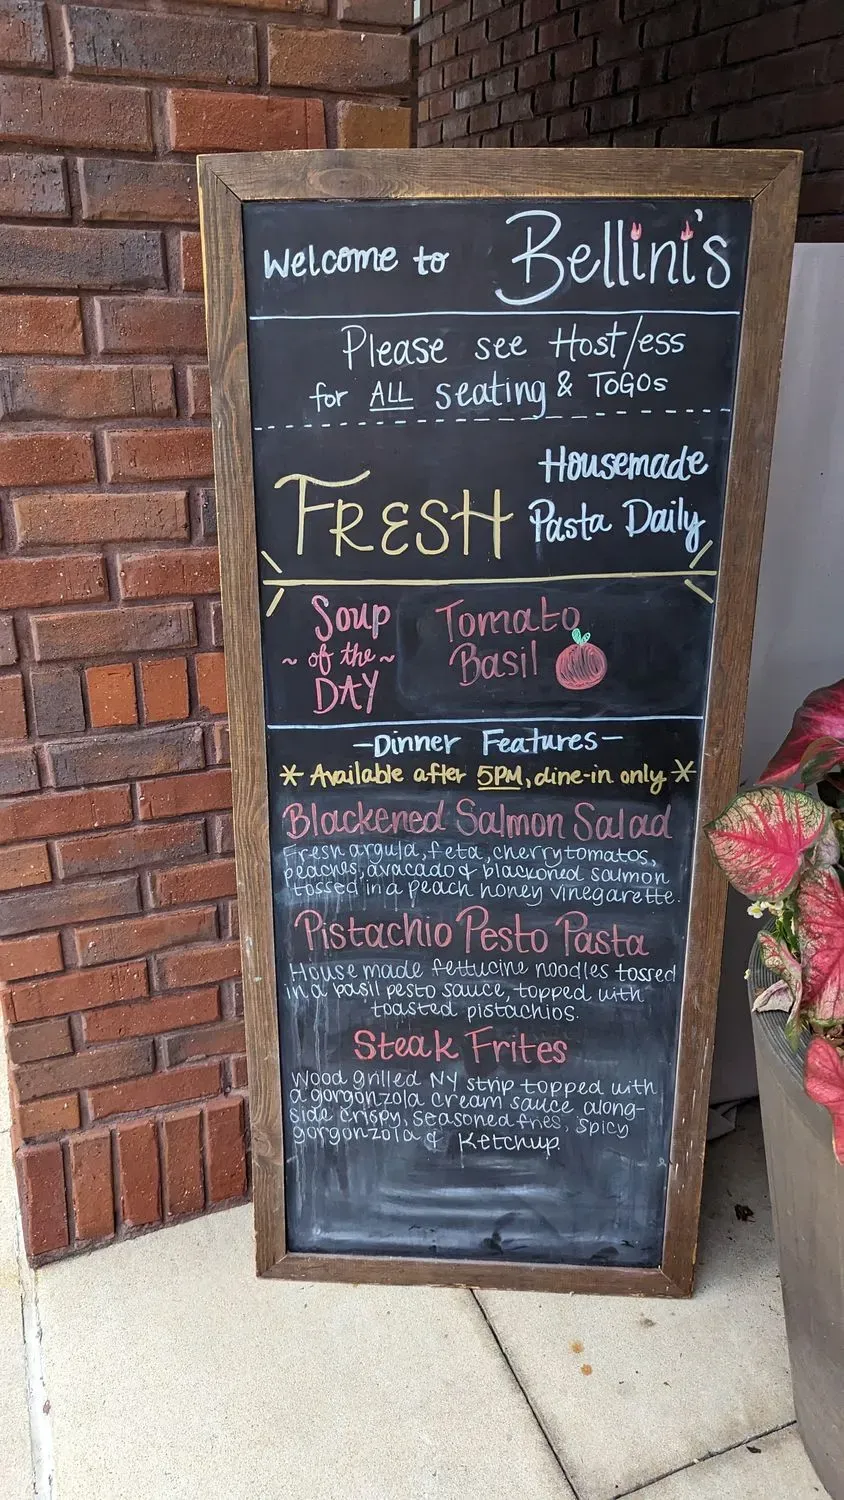 Welcome to Bellini's
Please see Host/ess
for ALL seating & TOGOs
FRESH Housemade
Pasta Daily
Soup
~ of the ~
DAY
Tomato
Basil
-Dinner Features-
* Available after 5PM, dine-in only *
Blackened Salmon Salad
Fresh argula, feta, cherry tomatos,
peaches, avacado & blackoned salmon
tossed in a peach honey vinegarette.
Pistachio Pesto Pasta
House made fettucine noodles tossed
in a basil pesto sauce, topped with
toasted pistachios.
Steak Frites
Wood grilled NY strip topped with
a gorgonzola cream sauce, along-
side crispy, seasoned fries, spicy
gorgonzola & Ketchup